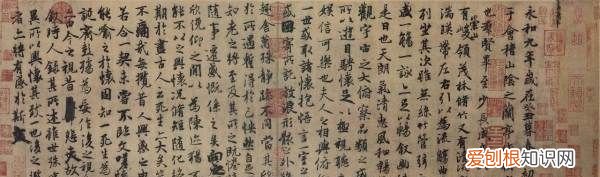 永和九年歲在癸丑
于會稽山陰之蘭亭
也羣賢畢至少長咸
有崇山峻領茂林脩竹又有清
湍暎帶左右引以為流觴
列坐其次雖無絲竹管弦
盛一觴一詠亦足以暢敘幽情
是日也天朗氣清惠風和暢
觀宇宙之大俯察品類之
所以遊目騁懷足以極視聽
娛信可樂也夫人之相與俯仰
一世或取諸懷抱悟言一
或因寄所託放浪形骸之外
趣舍萬殊靜躁不同當其
於所遇蹔得於己怏然自
知老之將至及其所之既惓
隨事遷感慨係之矣向之
欣俛仰之閒以為陳迹猶
能不以之興懷況脩短隨化
期於盡古人云死生亦大矣
不痛哉每攬昔人興感之
若合一契未嘗不臨文嗟
能喻之於懷固知一死生為
誕齊彭殤為妄作後之視
亦由今之視昔悲夫故
敘時人錄其所述雖世殊
異所以興懷其致一也後之攬
者亦將有感於斯
爱刨根知识网